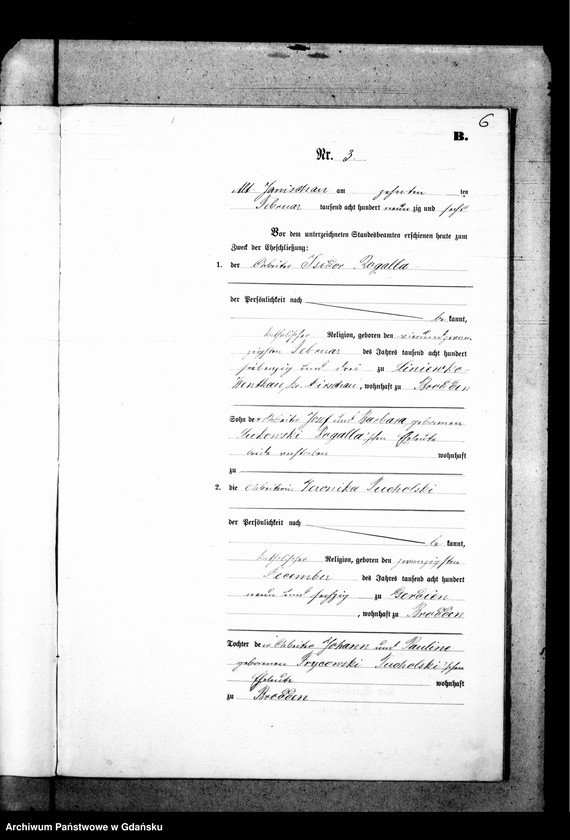 6
B.
Nr. 3.
Alt-Janischau am zehnten ten
Februar tausend acht hundert neun zig und sechs
Vor dem unterzeichneten Standesbeamten erschienen heute zum
Zweck der Eheschließung:
1. der Arbeiter Isidor Rogalla
der Persönlichkeit nach
be kannt,
katholischer Religion, geboren den vierundzwan-
zigsten Februar des Jahres tausend acht hundert
siebenzig und drei zu Liniewko-
Dirschau, wohnhaft zu Brodden
Sohn der Arbeiter Josef und Barbara geborenen
Rogalla'schen Eheleute
beide verstorben wohnhaft
zu
2. die Arbeiterin Veronika Pucholski
der Persönlichkeit nach
be kannt,
katholischer Religion, geboren den zwanzigsten
December des Jahres tausend acht hundert
neun und sechzig zu Gerdien
, wohnhaft zu Brodden
Tochter der Arbeiter Johann und Pauline
geborenen Pucholski'schen
Eheleute wohnhaft
zu Brodden
Archiwum Państwowe w Gdańsku